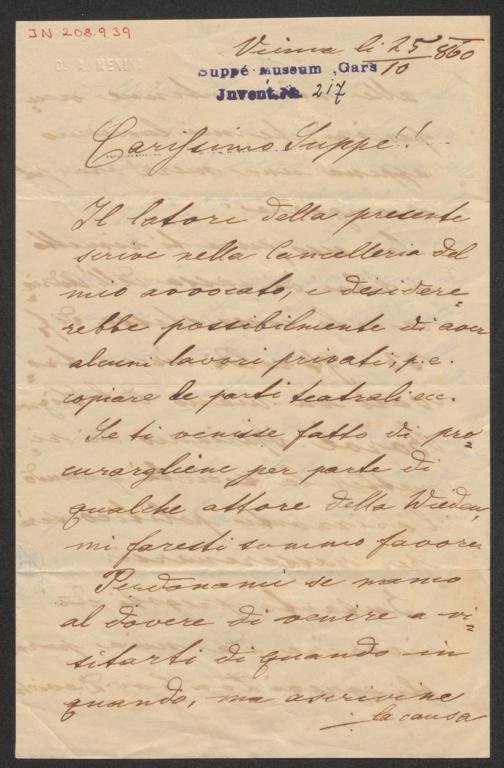 IN 208.939
Vienna li 25/10 860
Suppé Museum Gars
Jnvent.No. 217
Carissimo Suppé!
Il latore della presente
scrive nella Cancelleria del
mio avvocato, e deside=
rebbe possibilmente di aver
alcuni lavori privati, p.e.
copiare le parti teatrali ecc.
Se ti venisse fatto di pro=
curargliene per parte di
qualche attore della Wieden,
mi faresti sommo favore
Perdonami se manco
al dovere di venire a vi=
sitarti di quando in
quando, ma ascrivine
la causa